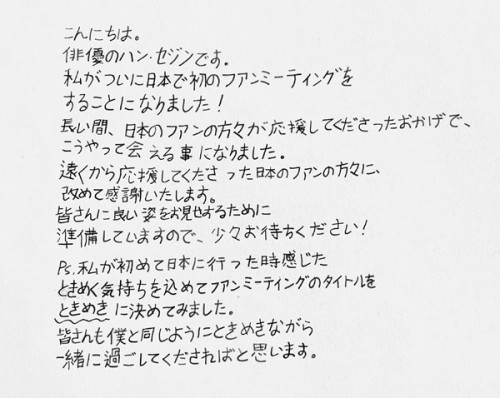 こんにちは。
俳優のハン・セジンです。
私がついに日本で初のファンミーティングを
することになりました！
長い間、日本のファンの方々が応援してくださったおかげで、
こうやって会える事になりました。
遠くから応援してくださった日本のファンの方々に、
改めて感謝いたします。
皆さんに良い姿をお見せするために
準備していますので、少々お待ちください！
Ps. 私が初めて日本に行った時感じた
ときめく気持ちを込めてファンミーティングのタイトルを
ときめきに決めてみました。
皆さんも僕と同じようにときめきながら
一緒に過ごしてくださればと思います。